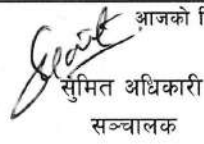 आजको
सुमित अधिकारी
सञ्चालक